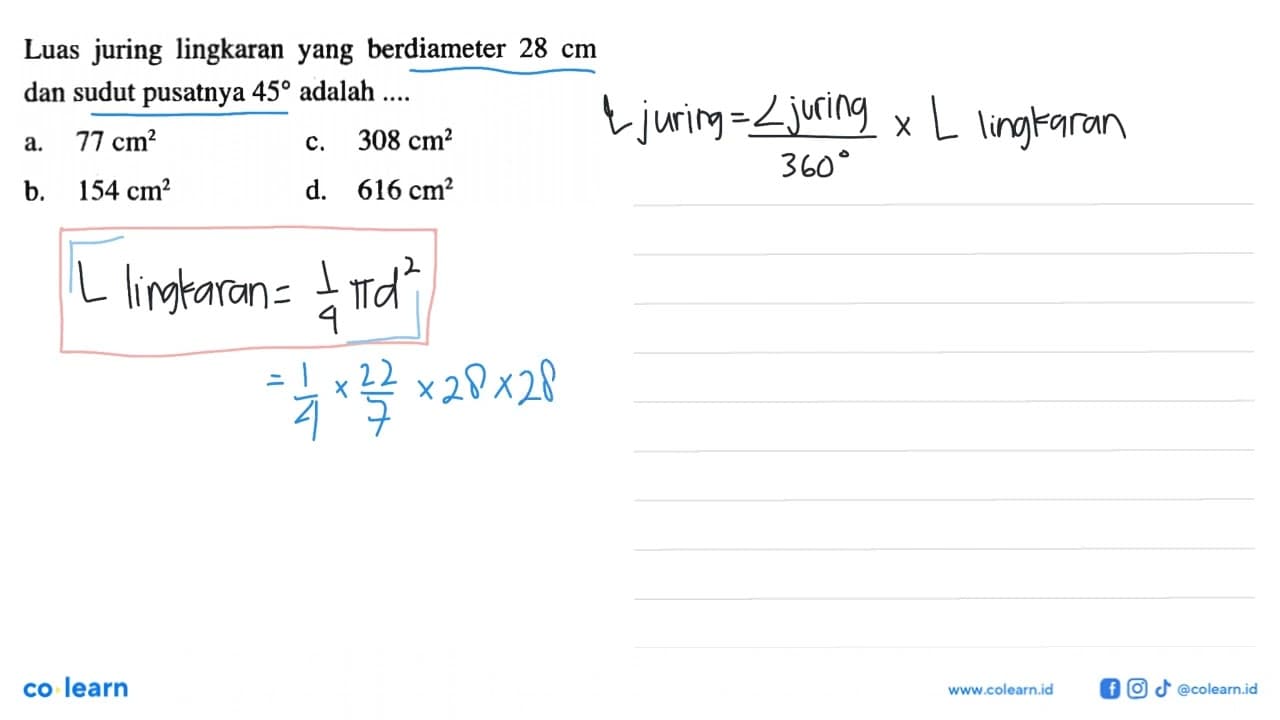 Luas juring lingkaran yang berdiameter 28 cm
dan sudut pusatnya 45° adalah ....
a. 77 cm² c. 308 cm²
b. 154 cm² d. 616 cm²
L juring = ∠juring / 360° × L lingkaran
L lingkaran = 1/4 πd²
= 1/4 × 22/7 × 28 × 28
co learn
www.colearn.id @colearn.id